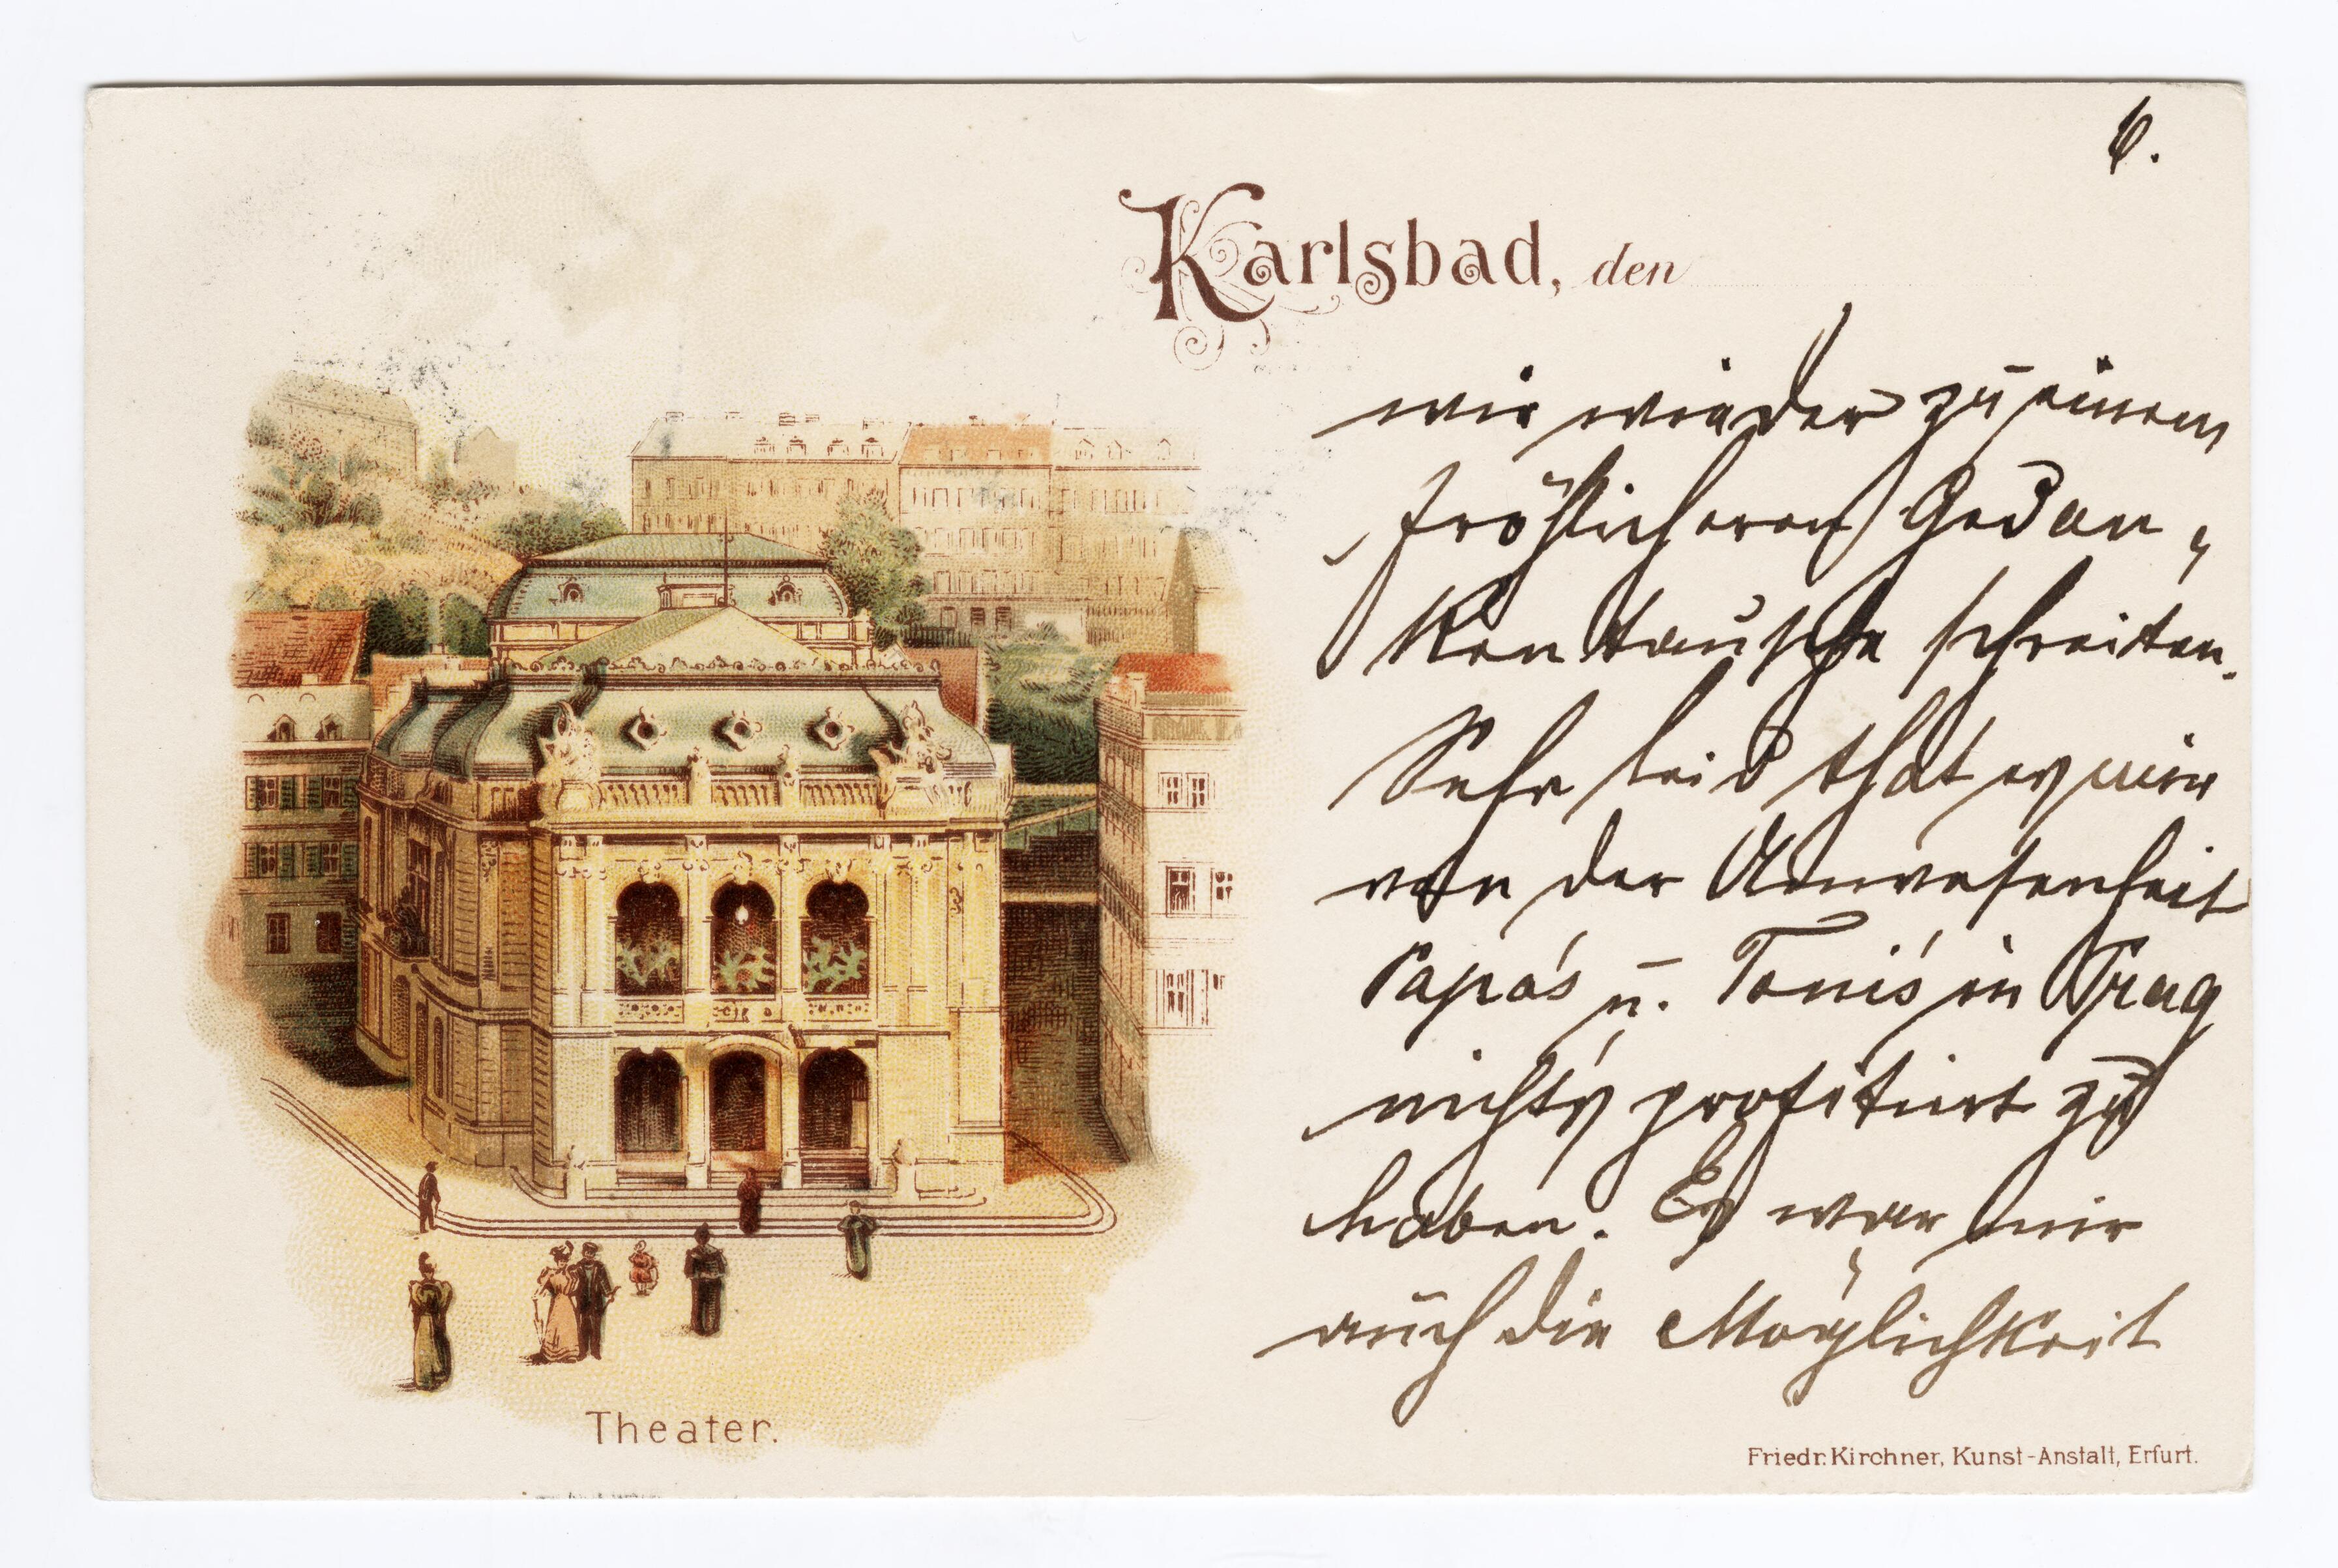 6.
Karlsbad, den
wir wieder zu einem
fröhlicheren Gedan„
kentausche schreiten.
Sehr leid that es mir
von der Anwesenheit
Papa's u. Toni's in Prag
nichts profitirt zu
haben. Es war mir
auch die Möglichkeit
Theater.
Friedr. Kirchner, Kunst-Anstalt, Erfurt.